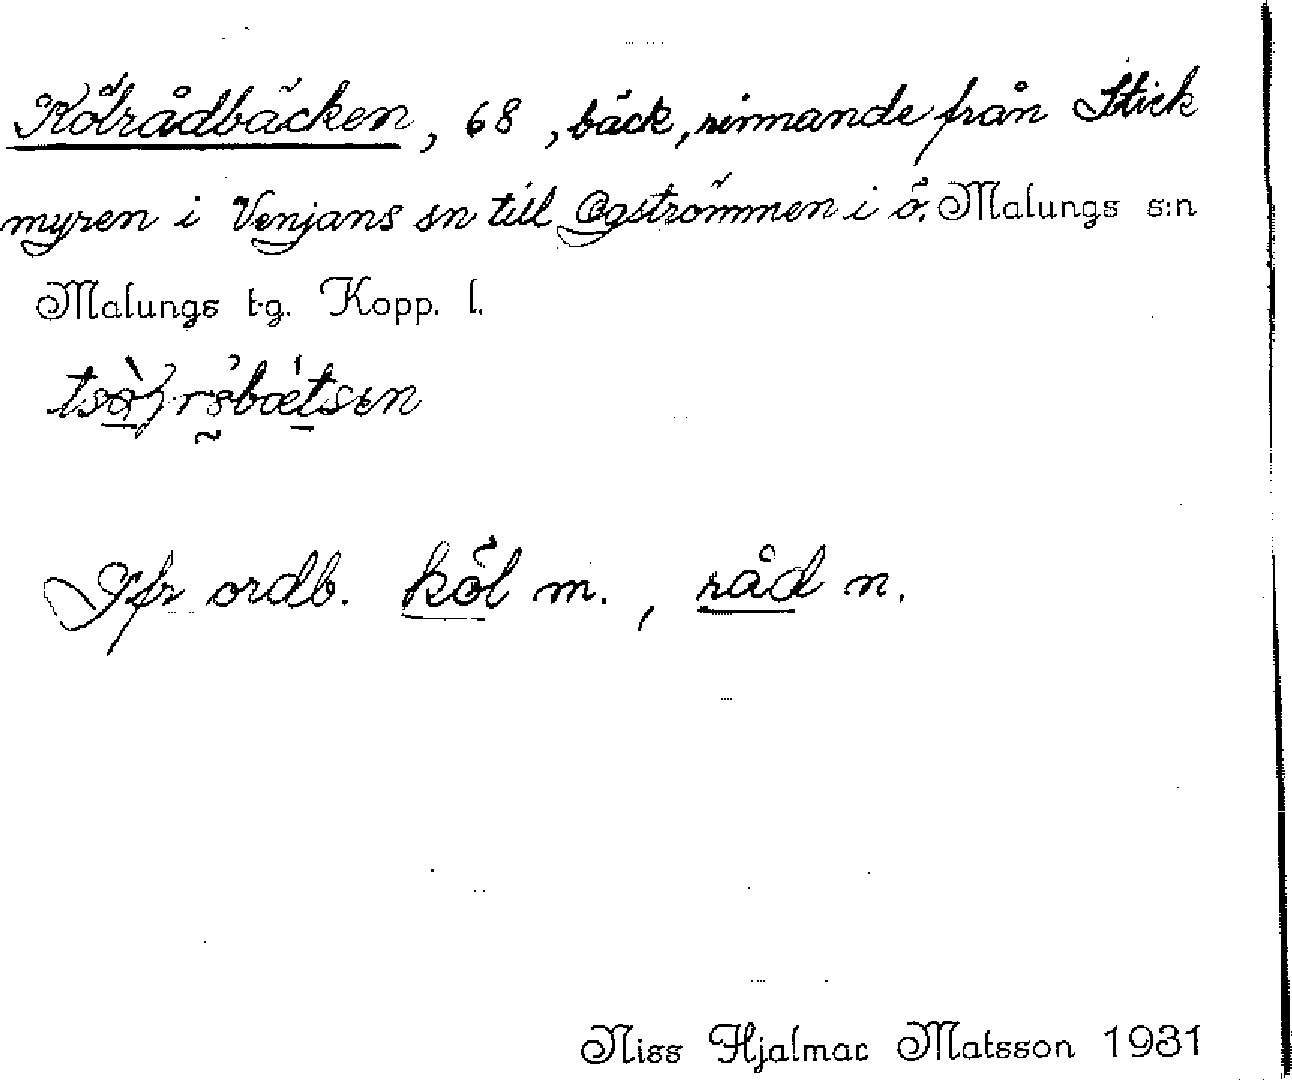 Kölrådbäcken, 68, bäck, rinnande från Stick
myren i Venjans sn till Ogströmmen i ö. Malungs s:n
Malungs t-g. Kopp. l.
Jfr ordb. köl m., råd n.
Niss Hjalmar Matsson 1931